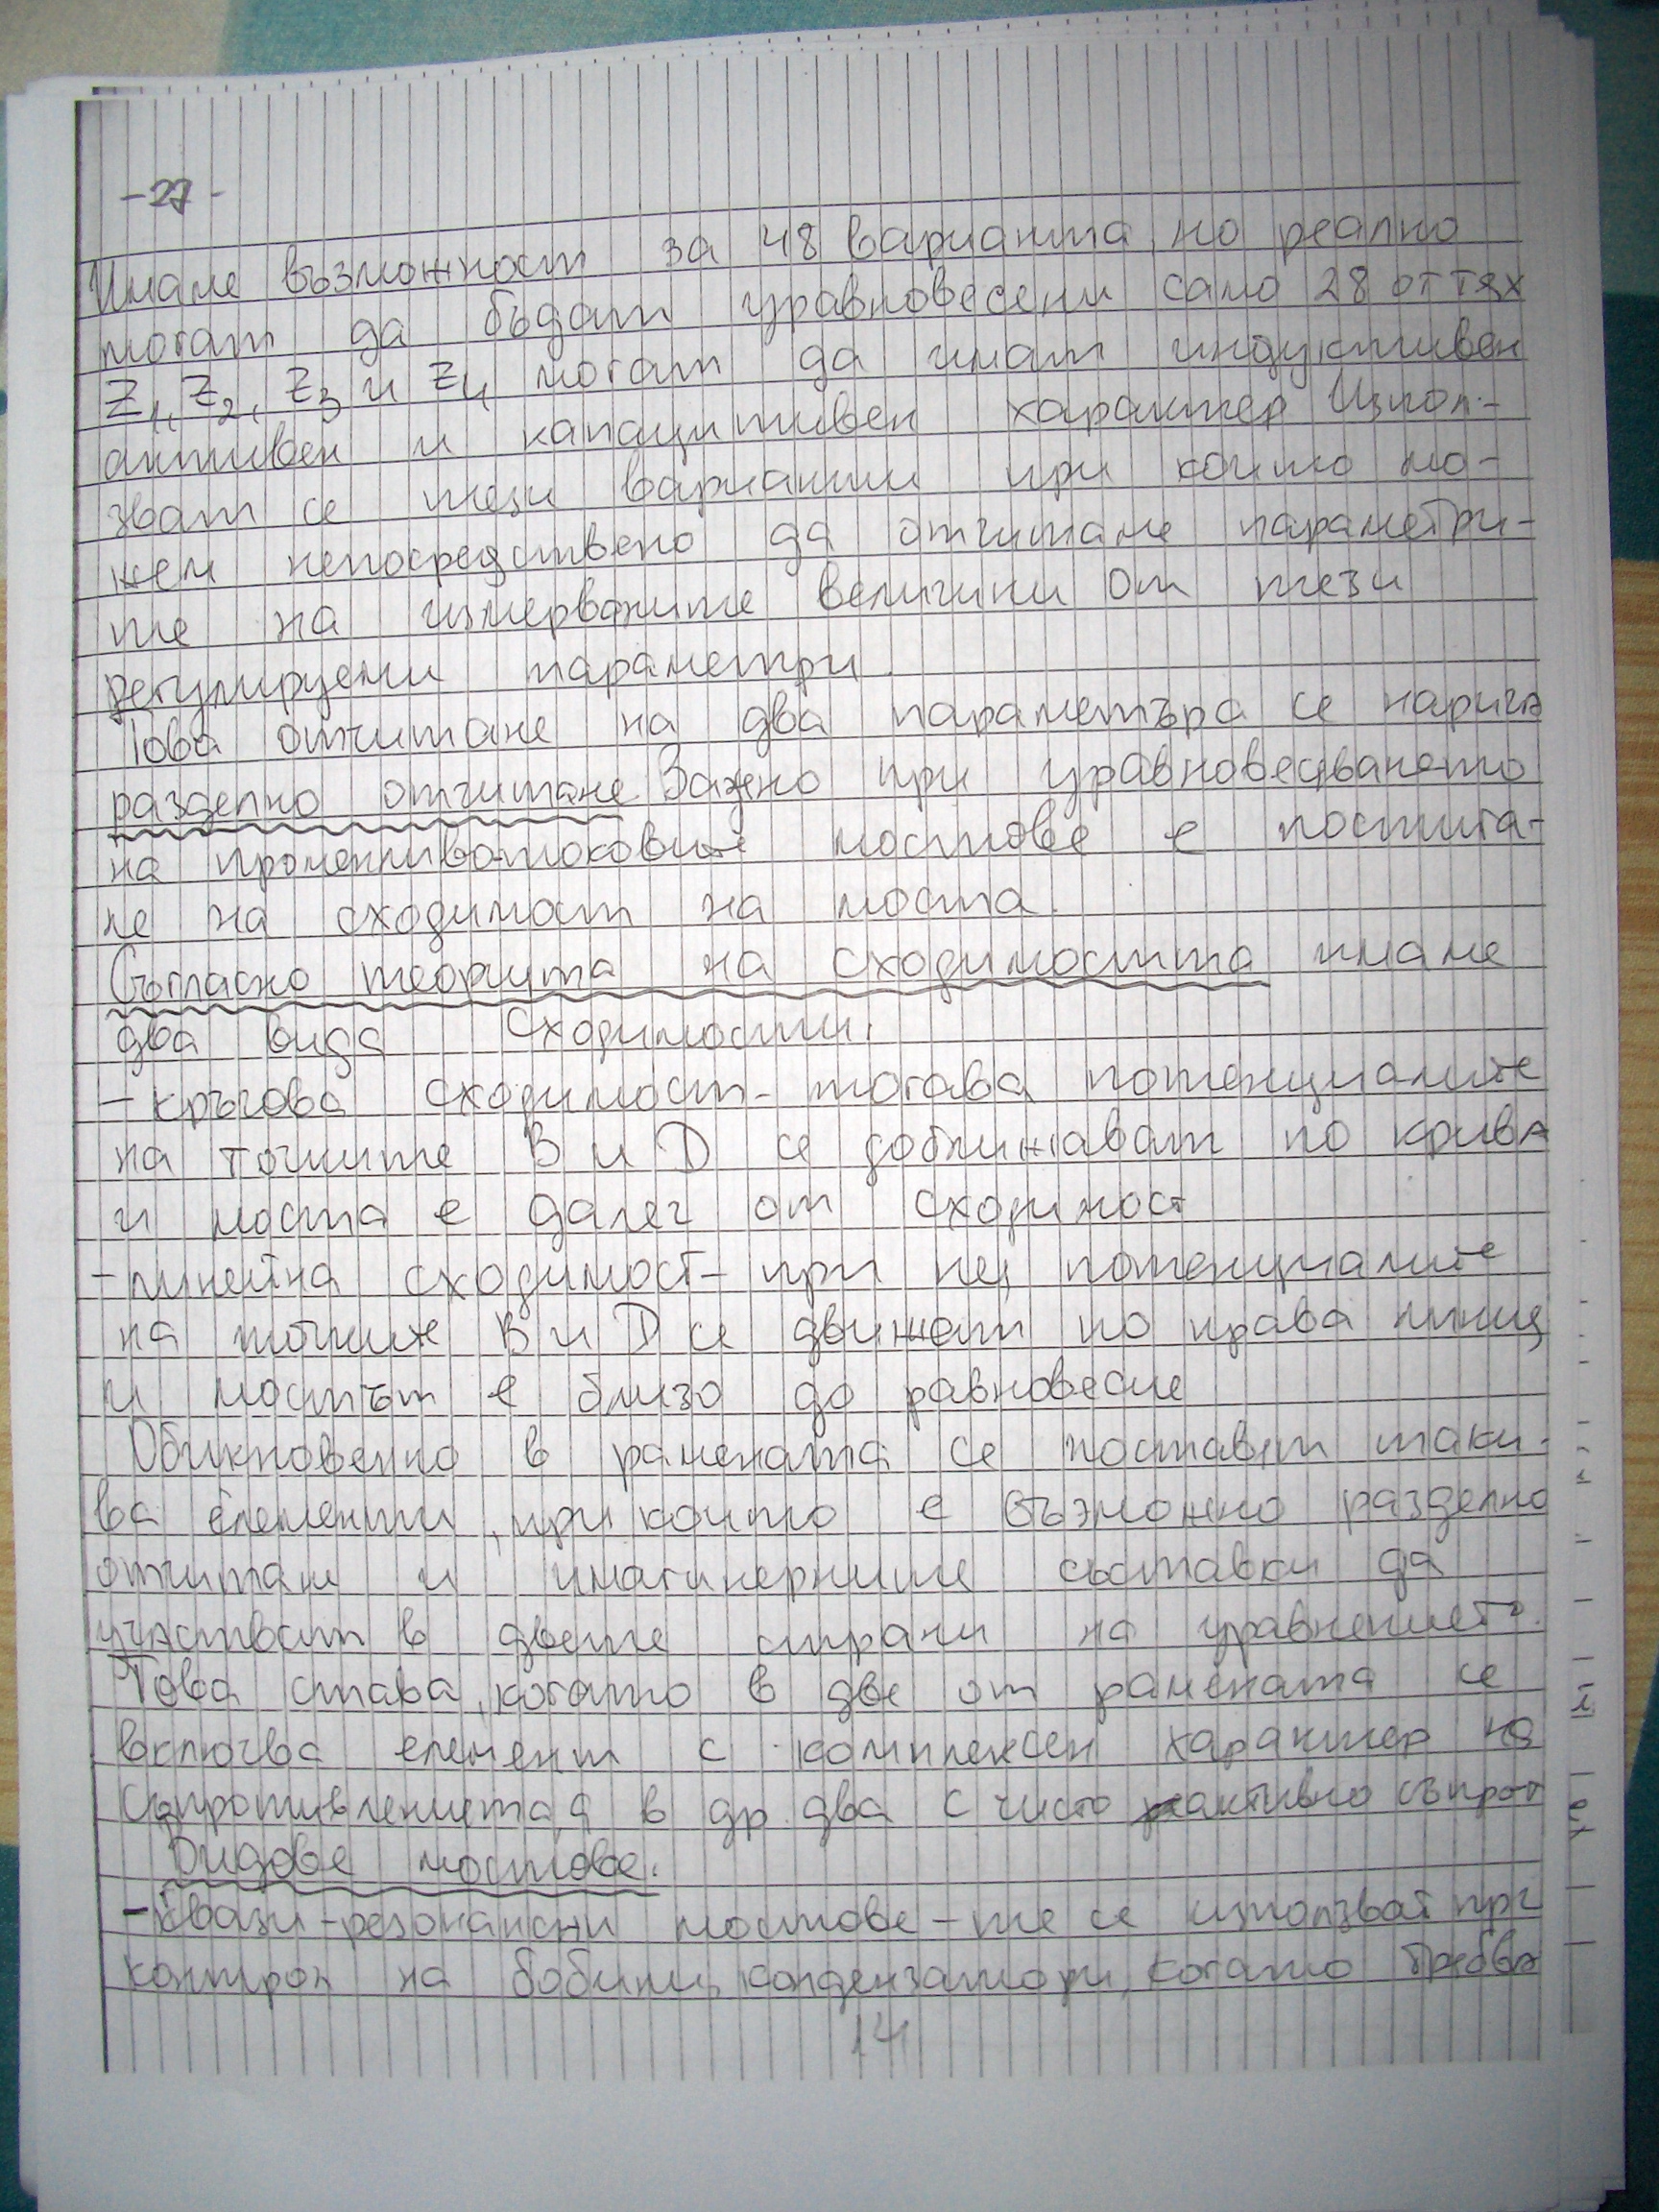 -27-
Имаме възможност за 48 варианта, но реално
могат да бъдат уравновесени само 28 от тях
Z1, Z2, Z3 и Z4 могат да имат индуктивен
активен и капацитивен характер. Изпол-
зват се тези варианти при които мо-
жем непосредствено да отчитаме параметри-
те на измерваните величини от тези
регулируеми параметри.
Това отчитане на два параметъра се нарича
разделно отчитане. Важно при уравновесяването
на променливотоковите мостове е постига-
не на сходимост на моста.
Съгласно теорията на сходимостта имаме
два вида сходимости:
- кръгова сходимост - тогава потенциалите
на точките B и D се доближават по крива
и моста е далеч от сходимост
- линейна сходимост - при нея потенциалите
на точките B и D се движат по права линия
и мостът е близо до равновесие
Обикновенно в рамената се поставят таки-
ва елементи, при които е възможно разделно
отчитане и имагинерните съставки да
участват в двете страни на уравнението.
Това става, когато в две от рамената се
включва елемент с комплексен характер на
съпротивлението, а в др. два с чисто активно съпрот
Видове мостове:
- Квази-резонансни мостове - те се използват при
контрол на бобини, кондензатори, когато трябва
14